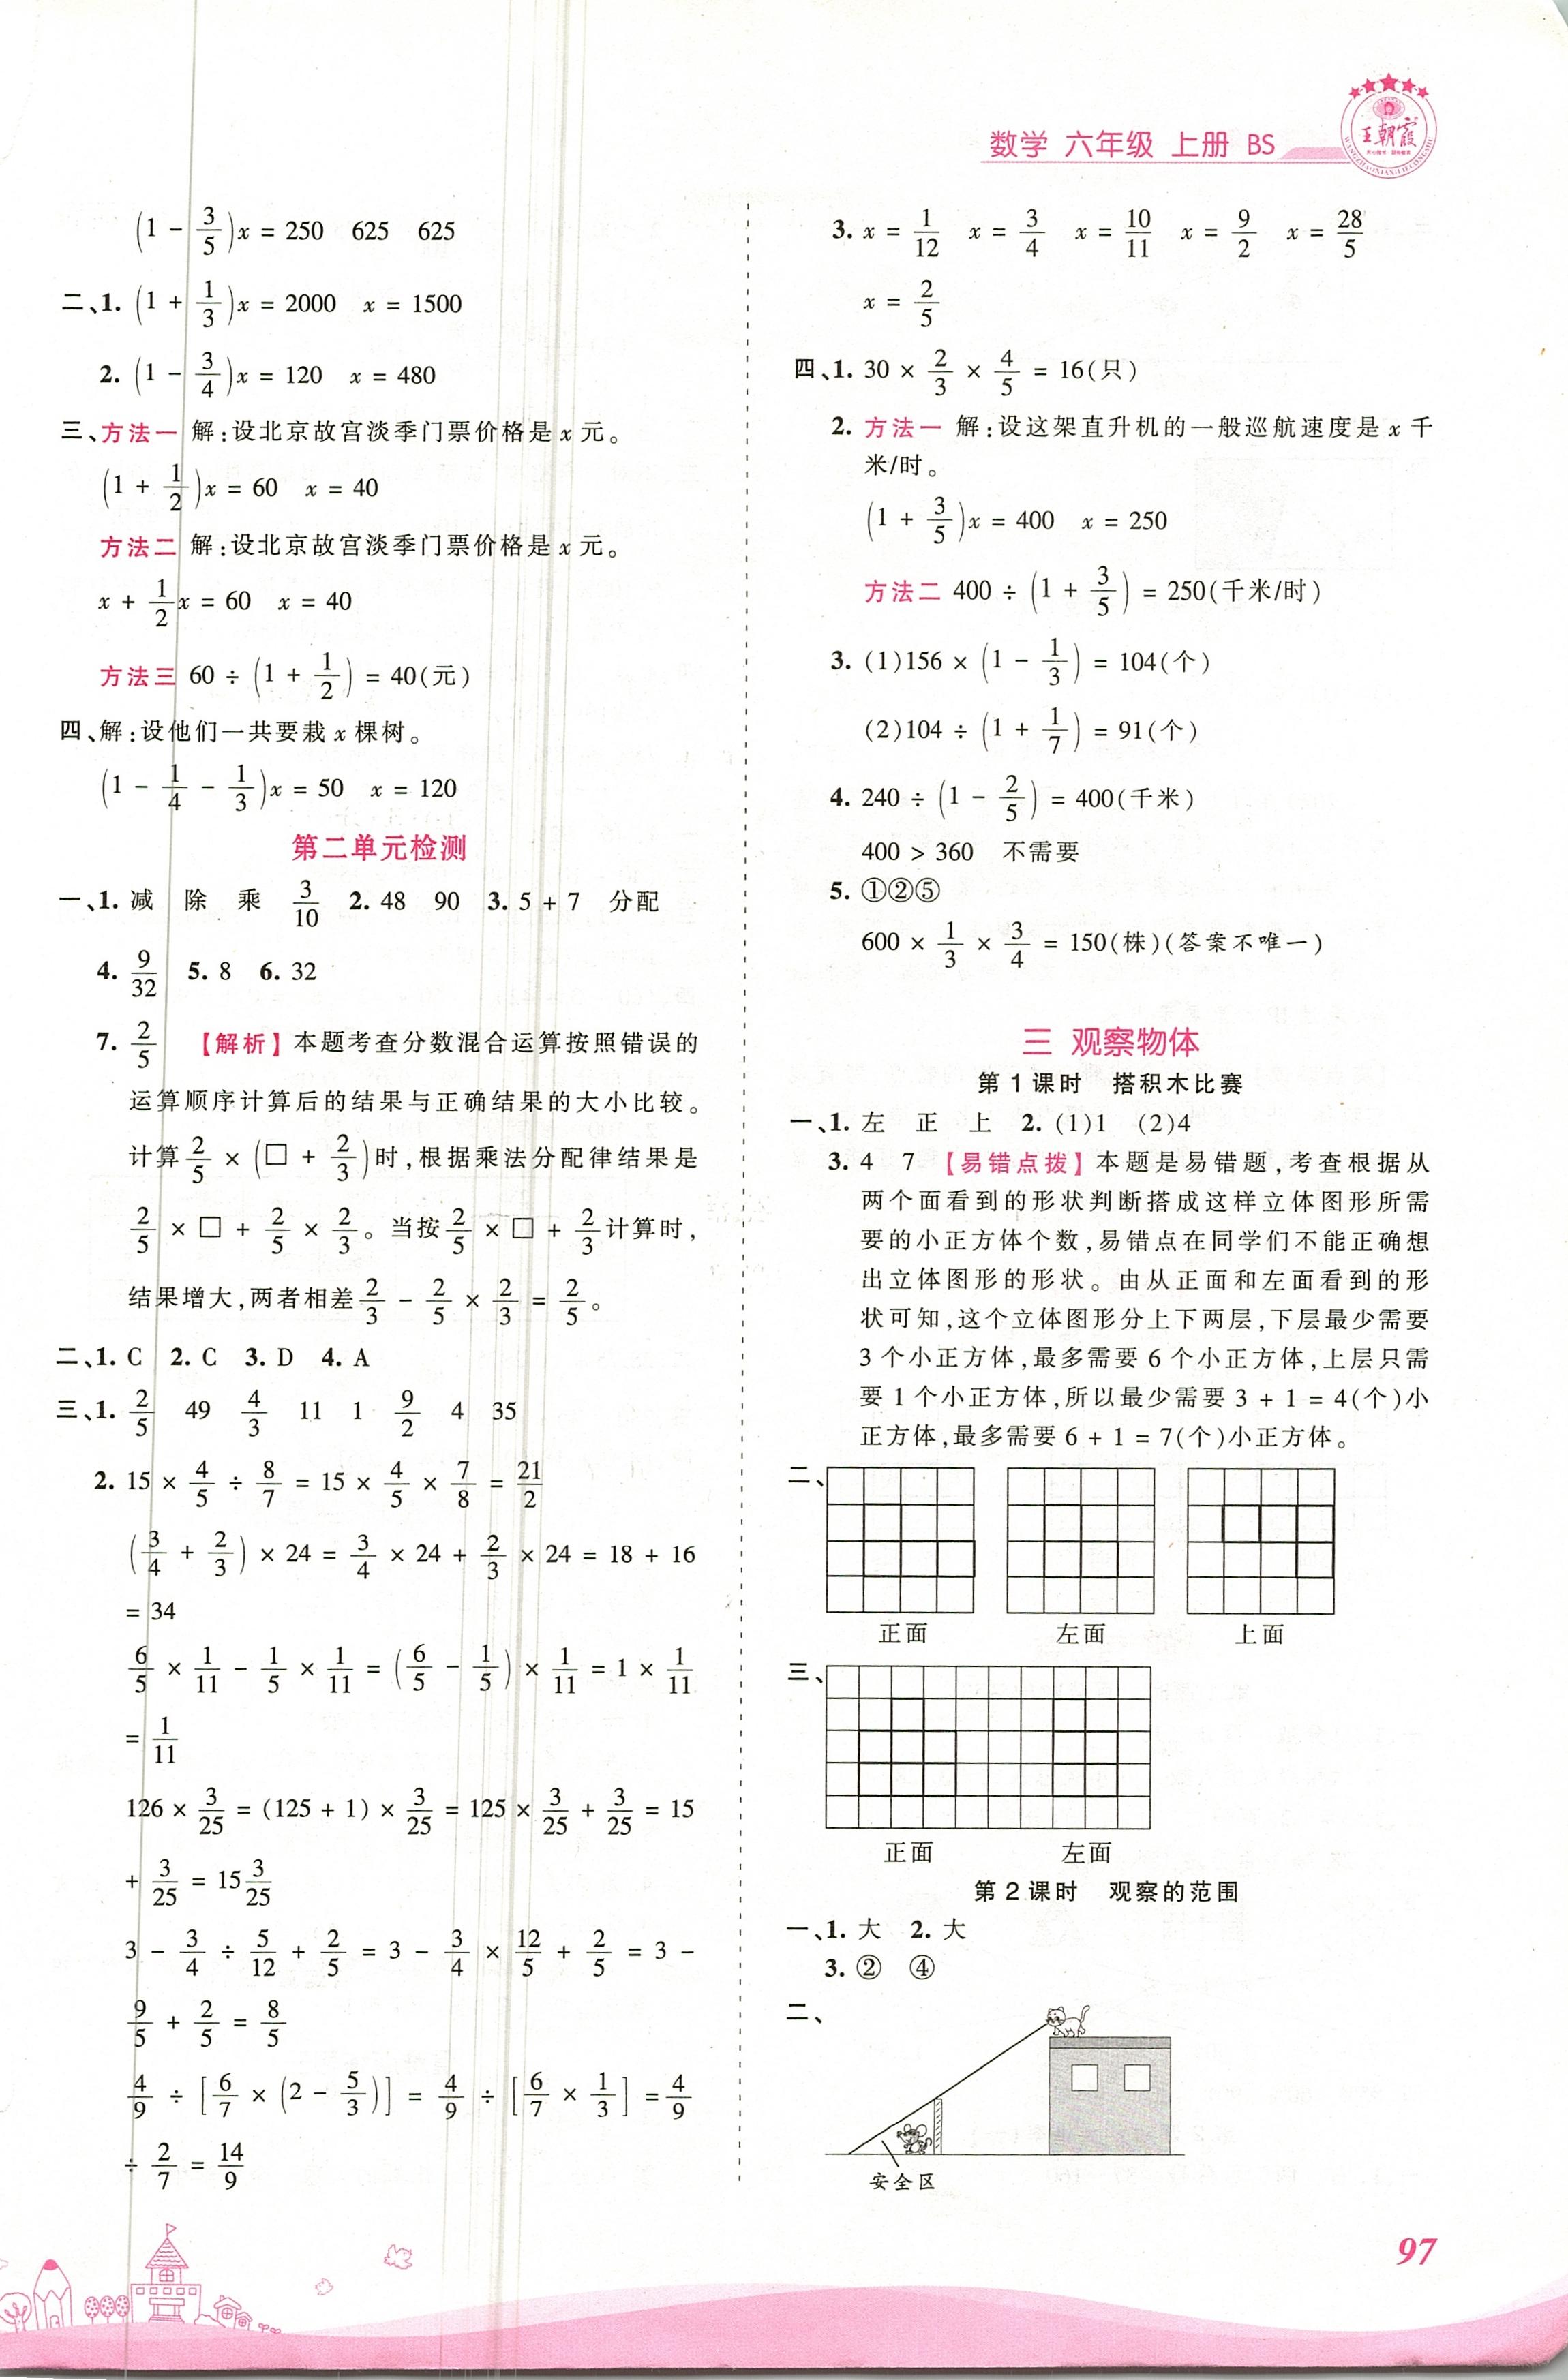 数学 六年级 上册 BS
王朝霞
(1 - 3/5)x = 250 625 625
二、1. (1 + 1/3)x = 2000 x = 1500
2. (1 - 3/4)x = 120 x = 480
三、方法一 解:设北京故宫淡季门票价格是 x 元。
(1 + 1/2)x = 60 x = 40
方法二 解:设北京故宫淡季门票价格是 x 元。
x + 1/2x = 60 x = 40
方法三 60 ÷ (1 + 1/2) = 40(元)
四、解:设他们一共要栽 x 棵树。
(1 - 1/4 - 1/3)x = 50 x = 120
第二单元检测
一、1. 减 除 乘 3/10 2. 48 90 3. 5 + 7 分配
4. 9/32 5. 8 6. 32
7. 2/5 【解析】本题考查分数混合运算按照错误的
运算顺序计算后的结果与正确结果的大小比较。
计算2/5 × (□ + 2/3)时,根据乘法分配律结果是
2/5 × □ + 2/5 × 2/3。当按2/5 × □ + 2/3计算时,
结果增大,两者相差2/3 - 2/5 × 2/3 = 2/5。
二、1. C 2. C 3. D 4. A
三、1. 2/5 49 4/3 11 1 9/2 4 35
2. 15 × 4/5 ÷ 8/7 = 15 × 4/5 × 7/8 = 21/2
(3/4 + 2/3) × 24 = 3/4 × 24 + 2/3 × 24 = 18 + 16
= 34
6/5 × 1/11 - 1/5 × 1/11 = (6/5 - 1/5) × 1/11 = 1 × 1/11
= 1/11
126 × 3/25 = (125 + 1) × 3/25 = 125 × 3/25 + 3/25 = 15
+ 3/25 = 15 3/25
3 - 3/4 ÷ 5/12 + 2/5 = 3 - 3/4 × 12/5 + 2/5 = 3 -
9/5 + 2/5 = 8/5
4/9 ÷ [6/7 × (2 - 5/3)] = 4/9 ÷ [6/7 × 1/3] = 4/9
÷ 2/7 = 14/9
3. x = 1/12 x = 3/4 x = 10/11 x = 9/2 x = 28/5
x = 2/5
四、1. 30 × 2/3 × 4/5 = 16(只)
2. 方法一 解:设这架直升机的一般巡航速度是 x 千
米/时。
(1 + 3/5)x = 400 x = 250
方法二 400 ÷ (1 + 3/5) = 250(千米/时)
3. (1)156 × (1 - 1/3) = 104(个)
(2)104 ÷ (1 + 1/7) = 91(个)
4. 240 ÷ (1 - 2/5) = 400(千米)
400 > 360 不需要
5. ①②⑤
600 × 1/3 × 3/4 = 150(株)(答案不唯一)
三 观察物体
第 1 课时 搭积木比赛
一、1. 左 正 上 2. (1)1 (2)4
3. 4 7 【易错点拨】本题是易错题,考查根据从
两个面看到的形状判断搭成这样立体图形所需
要的小正方体个数,易错点在同学们不能正确想
出立体图形的形状。由从正面和左面看到的形
状可知,这个立体图形分上下两层,下层最少需要
3 个小正方体,最多需要 6 个小正方体,上层只需
要 1 个小正方体,所以最少需要 3 + 1 = 4(个)小
正方体,最多需要 6 + 1 = 7(个)小正方体。
二、
正面 左面 上面
三、
正面 左面
第 2 课时 观察的范围
一、1. 大 2. 大
3. ② ④
二、
安全区
97